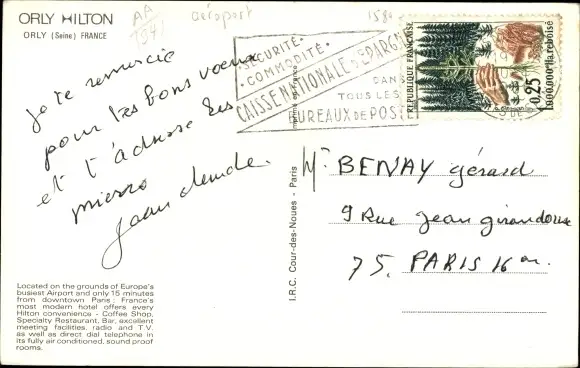 ORLY HILTON
ORLY (Seine) FRANCE
AA
aéroport
158
SÉCURITÉ
COMMODITÉ
CAISSE NATIONALE D'ÉPARGNE
DANS
TOUS LES
BUREAUX DE POSTE
RÉPUBLIQUE FRANÇAISE
0,25
1.000.000e ha reboisé
je te remercie
pour tes bons voeux
et t'adresse les
miens
Jean claude.
I.R.C. Cour-des-Noues - Paris
Mr BENAY Gérard
9 Rue Jean Giraudoux
75. PARIS 16 em.
Located on the grounds of Europe's
busiest Airport and only 15 minutes
from downtown Paris : France's
most modern hotel offers every
Hilton convenience - Coffee Shop,
Specialty Restaurant, Bar, excellent
meeting facilities, radio and T.V.
as well as direct dial telephone in
its fully air conditioned, sound proof
rooms.